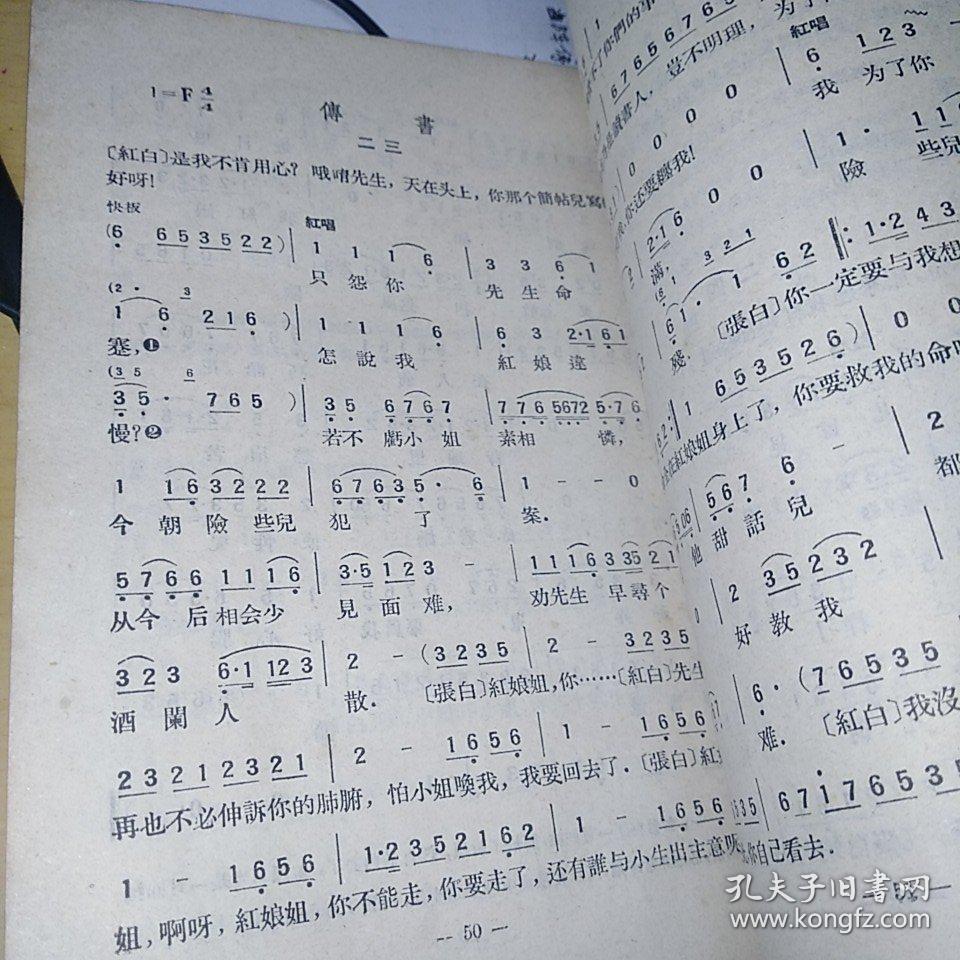 1=F 4/4
傳 書
二 三
〔紅白〕是我不肯用心？ 哦唷先生，天在头上，你那个簡帖兒寫
好呀！
快板 紅唱
(6 6 5 3 5 2 2 ) 1 1 1 6 3 3 6 1
只 怨 你 先 生 命
(2 · 3
1 6 2 1 6 ) 1 1 1 6 6 3 2·1 6 1
蹇，❶ 怎 說 我 紅 娘 違
(3 5 6
3 5 · 7 6 5 ) 3 5 6 7 6 7 7 7 6 5672 5·7 6
慢？❷ 若不 虧小 姐 素相 憐，
1 1 6 3 2 2 2 6 7 6 3 5 · 6 1 - - 0
今 朝 險 些兒 犯 了 案．
5 7 6 6 1 1 1 6 3·5 1 2 3 - 1 1 1 6 3 35 2 1
从今 后 相会少 見 面 难， 劝先生 早尋个
3 2 3 6·1 12 3 2 - ( 3 2 3 5 2 - 3 2 3 5
酒 闌 人 散． 〔張白〕紅娘姐，你……〔紅白〕先生
2 3 2 1 2 3 2 1 2 - 1 6 5 6 1 - 1 6 5 6
再也不必伸訴你的肺腑，怕小姐喚我，我要回去了．〔張白〕紅
1 - 1 6 5 6 1·2 3 5 2 1 6 2 1 - 1 6 5 6
姐，啊呀，紅娘姐，你不能走，你要走了，还有誰与小生出主意呀
— 50 —
豈不明理，
紅唱
0 0 0 0 6 1 2 3
我 为了你
2·1 6 0 0 1 · 1 1
滿， 險 些兒
6 1 · 1 6 2 1·2 4 3
殘． 〔張白〕你一定要与我想
6 5 3 5 2 6 ) 0 0
紅娘姐身上了，你要救我的命
5 6 7 6 · 2
他 甜 話 兒 都
2 3 5 2 3 2
好 教 我
6 · ( 7 6 5 3 5
难． 〔紅白〕我沒
6 7 1 7 6 5 3 5
你自己看去．
孔夫子旧書网
www.kongfz.com